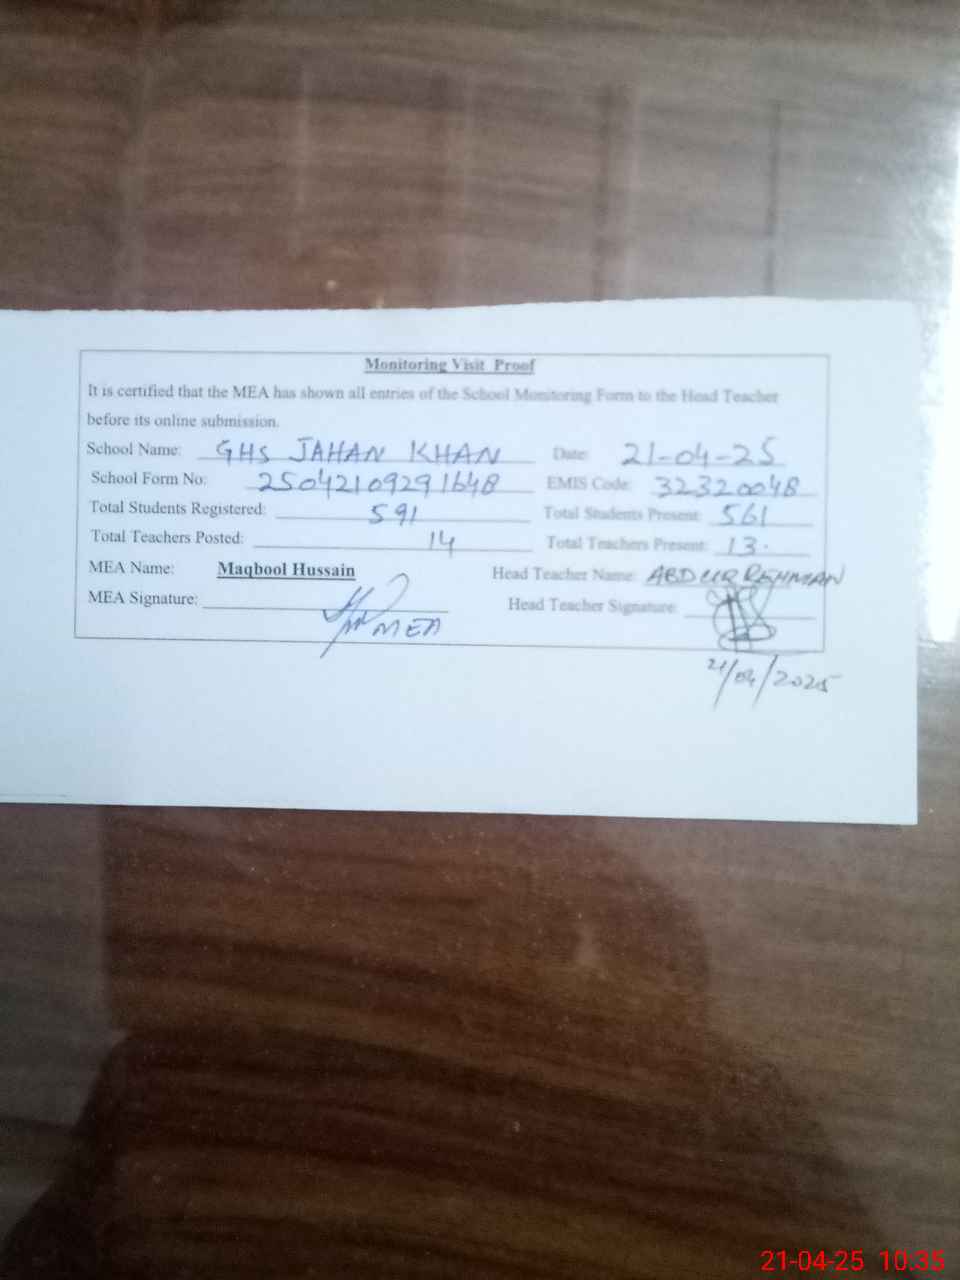 Monitoring Visit Proof
It is certified that the MEA has shown all entries of the School Monitoring Form to the Head Teacher
before its online submission.
School Name: GHS JAHAN KHAN Date: 21-04-25
School Form No: 25042109291648 EMIS Code: 32320048
Total Students Registered: 591 Total Students Present: 561
Total Teachers Posted: 14 Total Teachers Present: 13.
MEA Name: Maqbool Hussain Head Teacher Name: ABDUR REHMAN
MEA Signature: MEA Head Teacher Signature:
21/04/2025
21-04-25 10:35